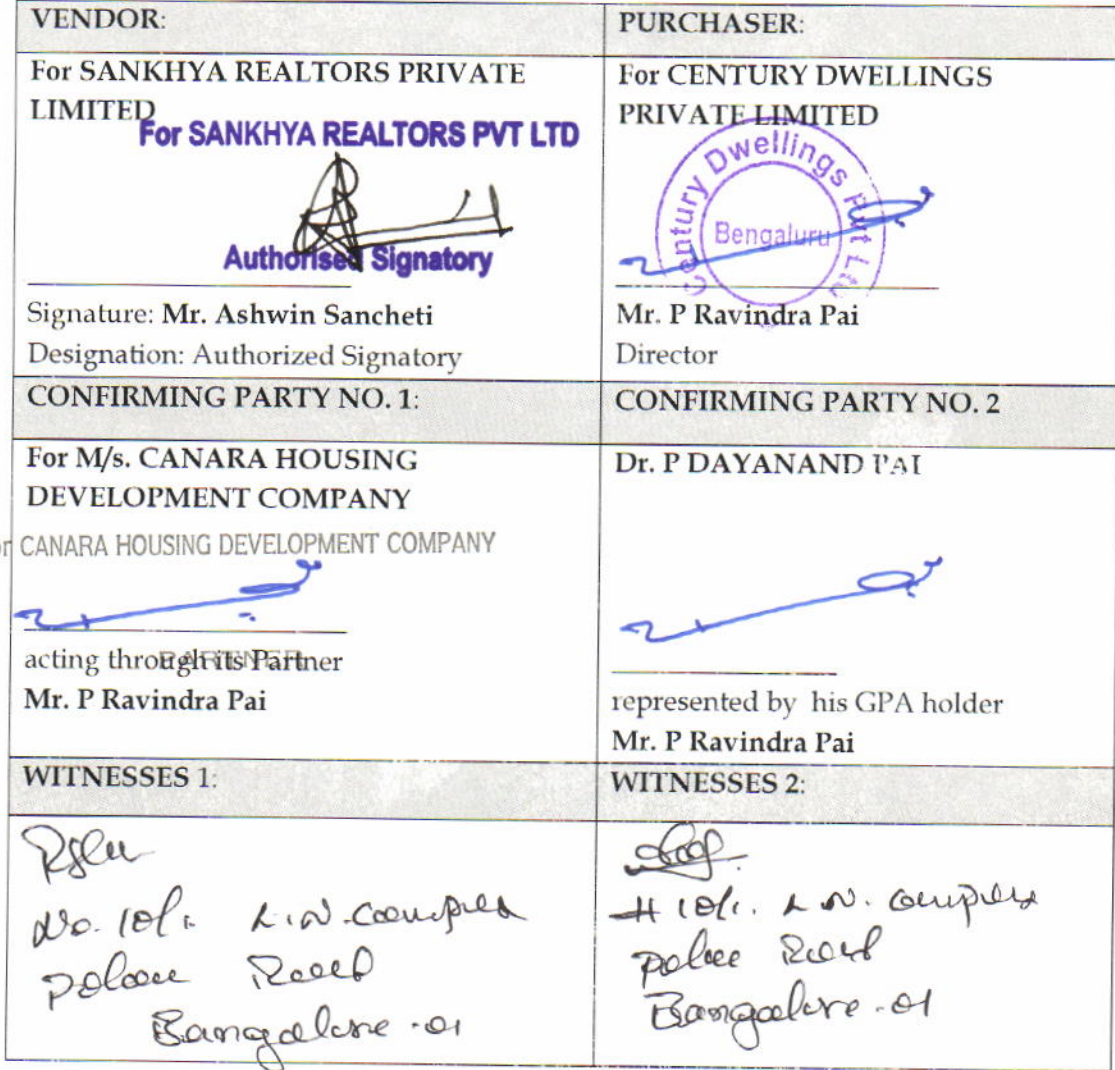 VENDOR:
PURCHASER:
For SANKHYA REALTORS PRIVATE
LIMITED
For SANKHYA REALTORS PVT LTD
Authorised Signatory
Signature: Mr. Ashwin Sancheti
Designation: Authorized Signatory
For CENTURY DWELLINGS
PRIVATE LIMITED
Century Dwellings Pvt Ltd
Bengaluru
Mr. P Ravindra Pai
Director
CONFIRMING PARTY NO. 1:
CONFIRMING PARTY NO. 2
For M/s. CANARA HOUSING
DEVELOPMENT COMPANY
or CANARA HOUSING DEVELOPMENT COMPANY
acting through its Partner
PARTNER
Mr. P Ravindra Pai
Dr. P DAYANAND PAI
represented by his GPA holder
Mr. P Ravindra Pai
WITNESSES 1:
WITNESSES 2:
No. 10/1. L.N. Complex
Palace Road
Bangalore-01
# 10/1. L.N. Complex
Palace Road
Bangalore-01